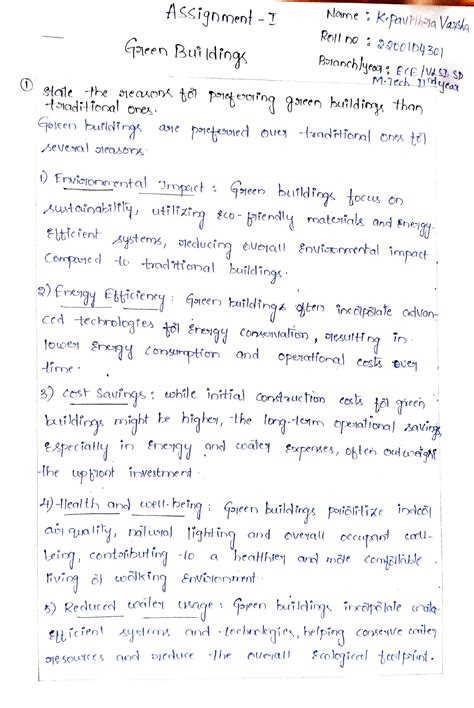 Assignment - I
Name : K. Pavithra Varsha
Roll no : 2200104301
Green Buildings
Branch/year : ECE/VLSI SD
M.Tech IInd year
① State the reasons for preferring green buildings than
traditional ones.
Green buildings are preferred over traditional ones for
several reasons.
1) Environmental Impact : Green buildings focus on
sustainability, utilizing eco-friendly materials and energy-
efficient systems, reducing overall environmental impact
compared to traditional buildings.
2) Energy Efficiency : Green buildings often incorporate advan-
ced technologies for energy conservation, resulting in
lower energy consumption and operational costs over
time.
3) Cost Savings : while initial construction costs for green
buildings might be higher, the long-term operational savings
especially in energy and water expenses, often outweigh
the upfront investment.
4) Health and well-being : Green buildings prioritize indoor
air quality, natural lighting and overall occupant well-
being, contributing to a healthier and more comfortable
living or working environment.
5) Reduced water usage : Green buildings incorporate water
efficient systems and technologies, helping conserve water
resources and reduce the overall ecological footprint.